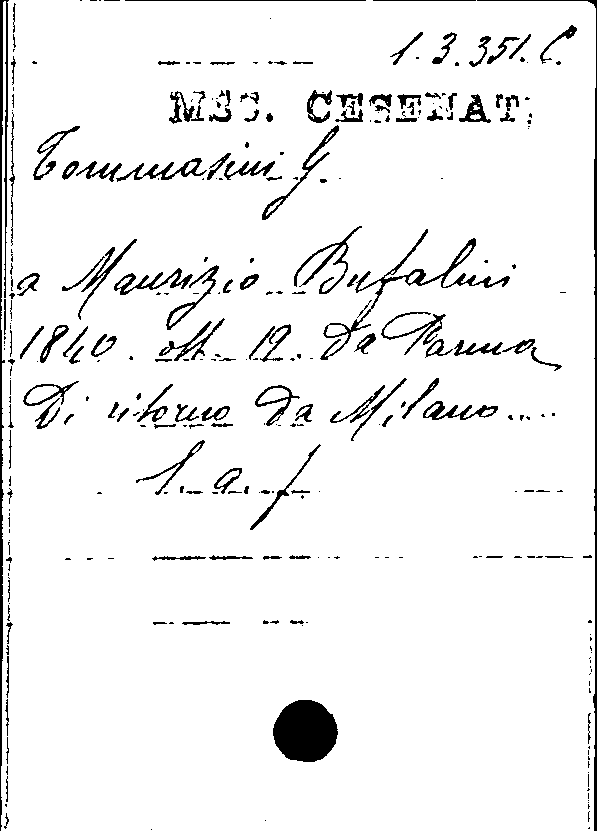 1.3.351.C.
MSC. CESENAT.
Tommasini G.
a Maurizio Bufalini
1840. ott. 12. Da Parma
Di ritorno da Milano....
l. a. f.